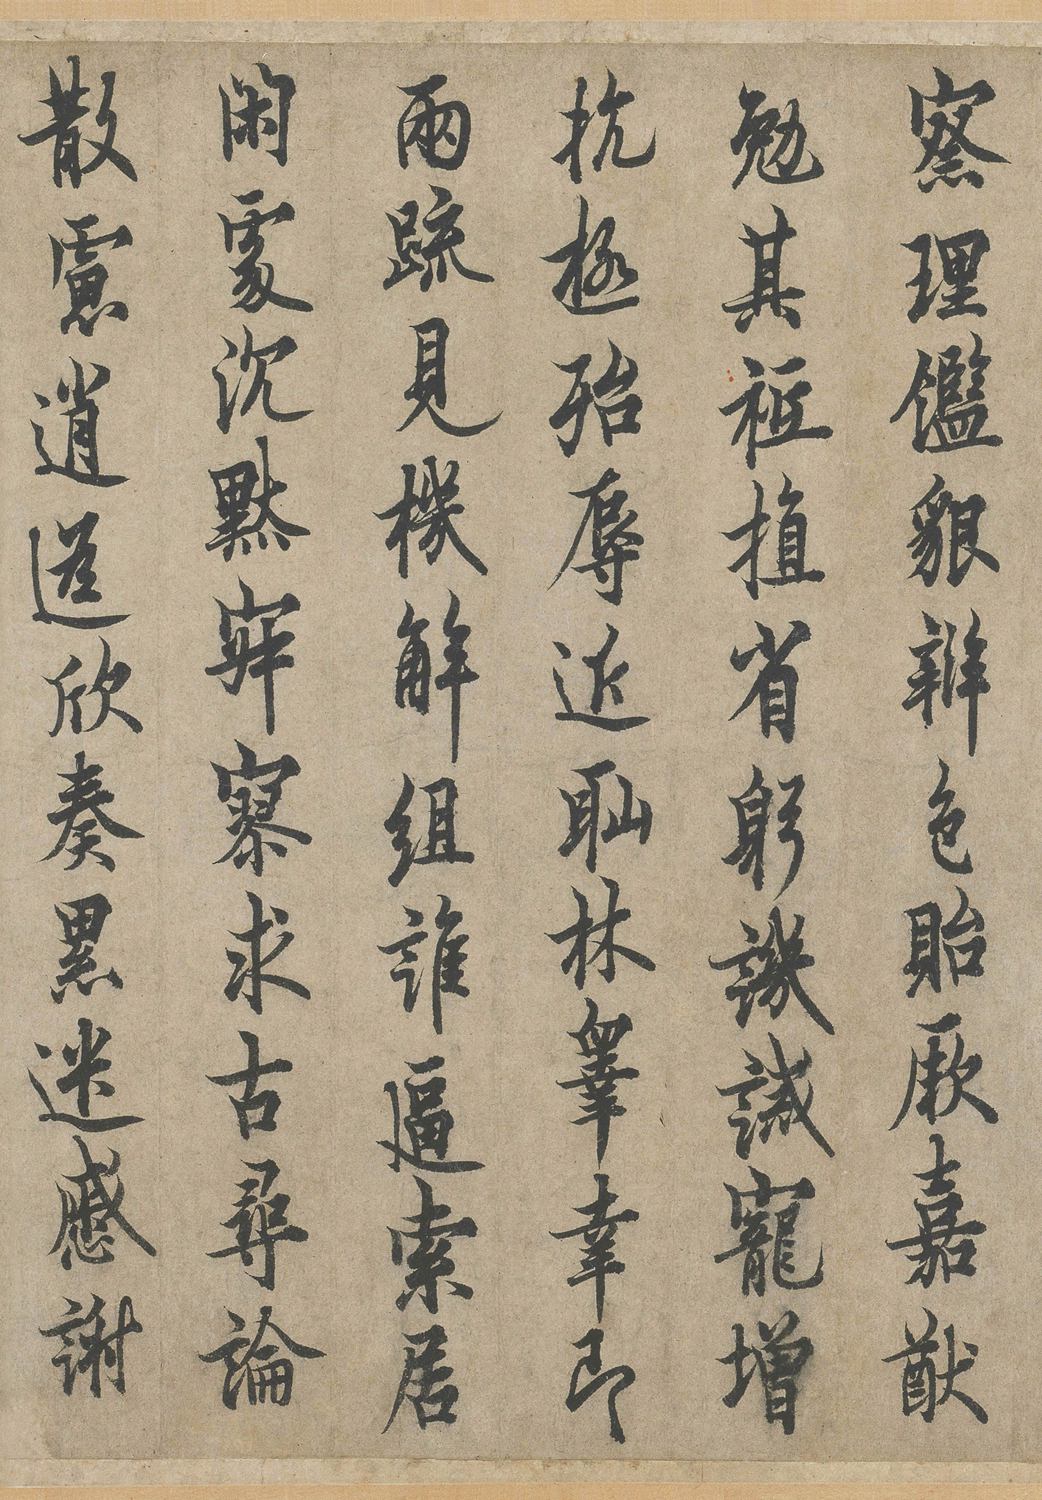 察理鑑貌辨色貽厥嘉猷
勉其祗植省躬譏誡寵增
抗極殆辱近耻林睾幸即
兩疏見機解組誰逼索居
閑處沉默寂寥求古尋論
散慮逍遥欣奏累迷慼謝